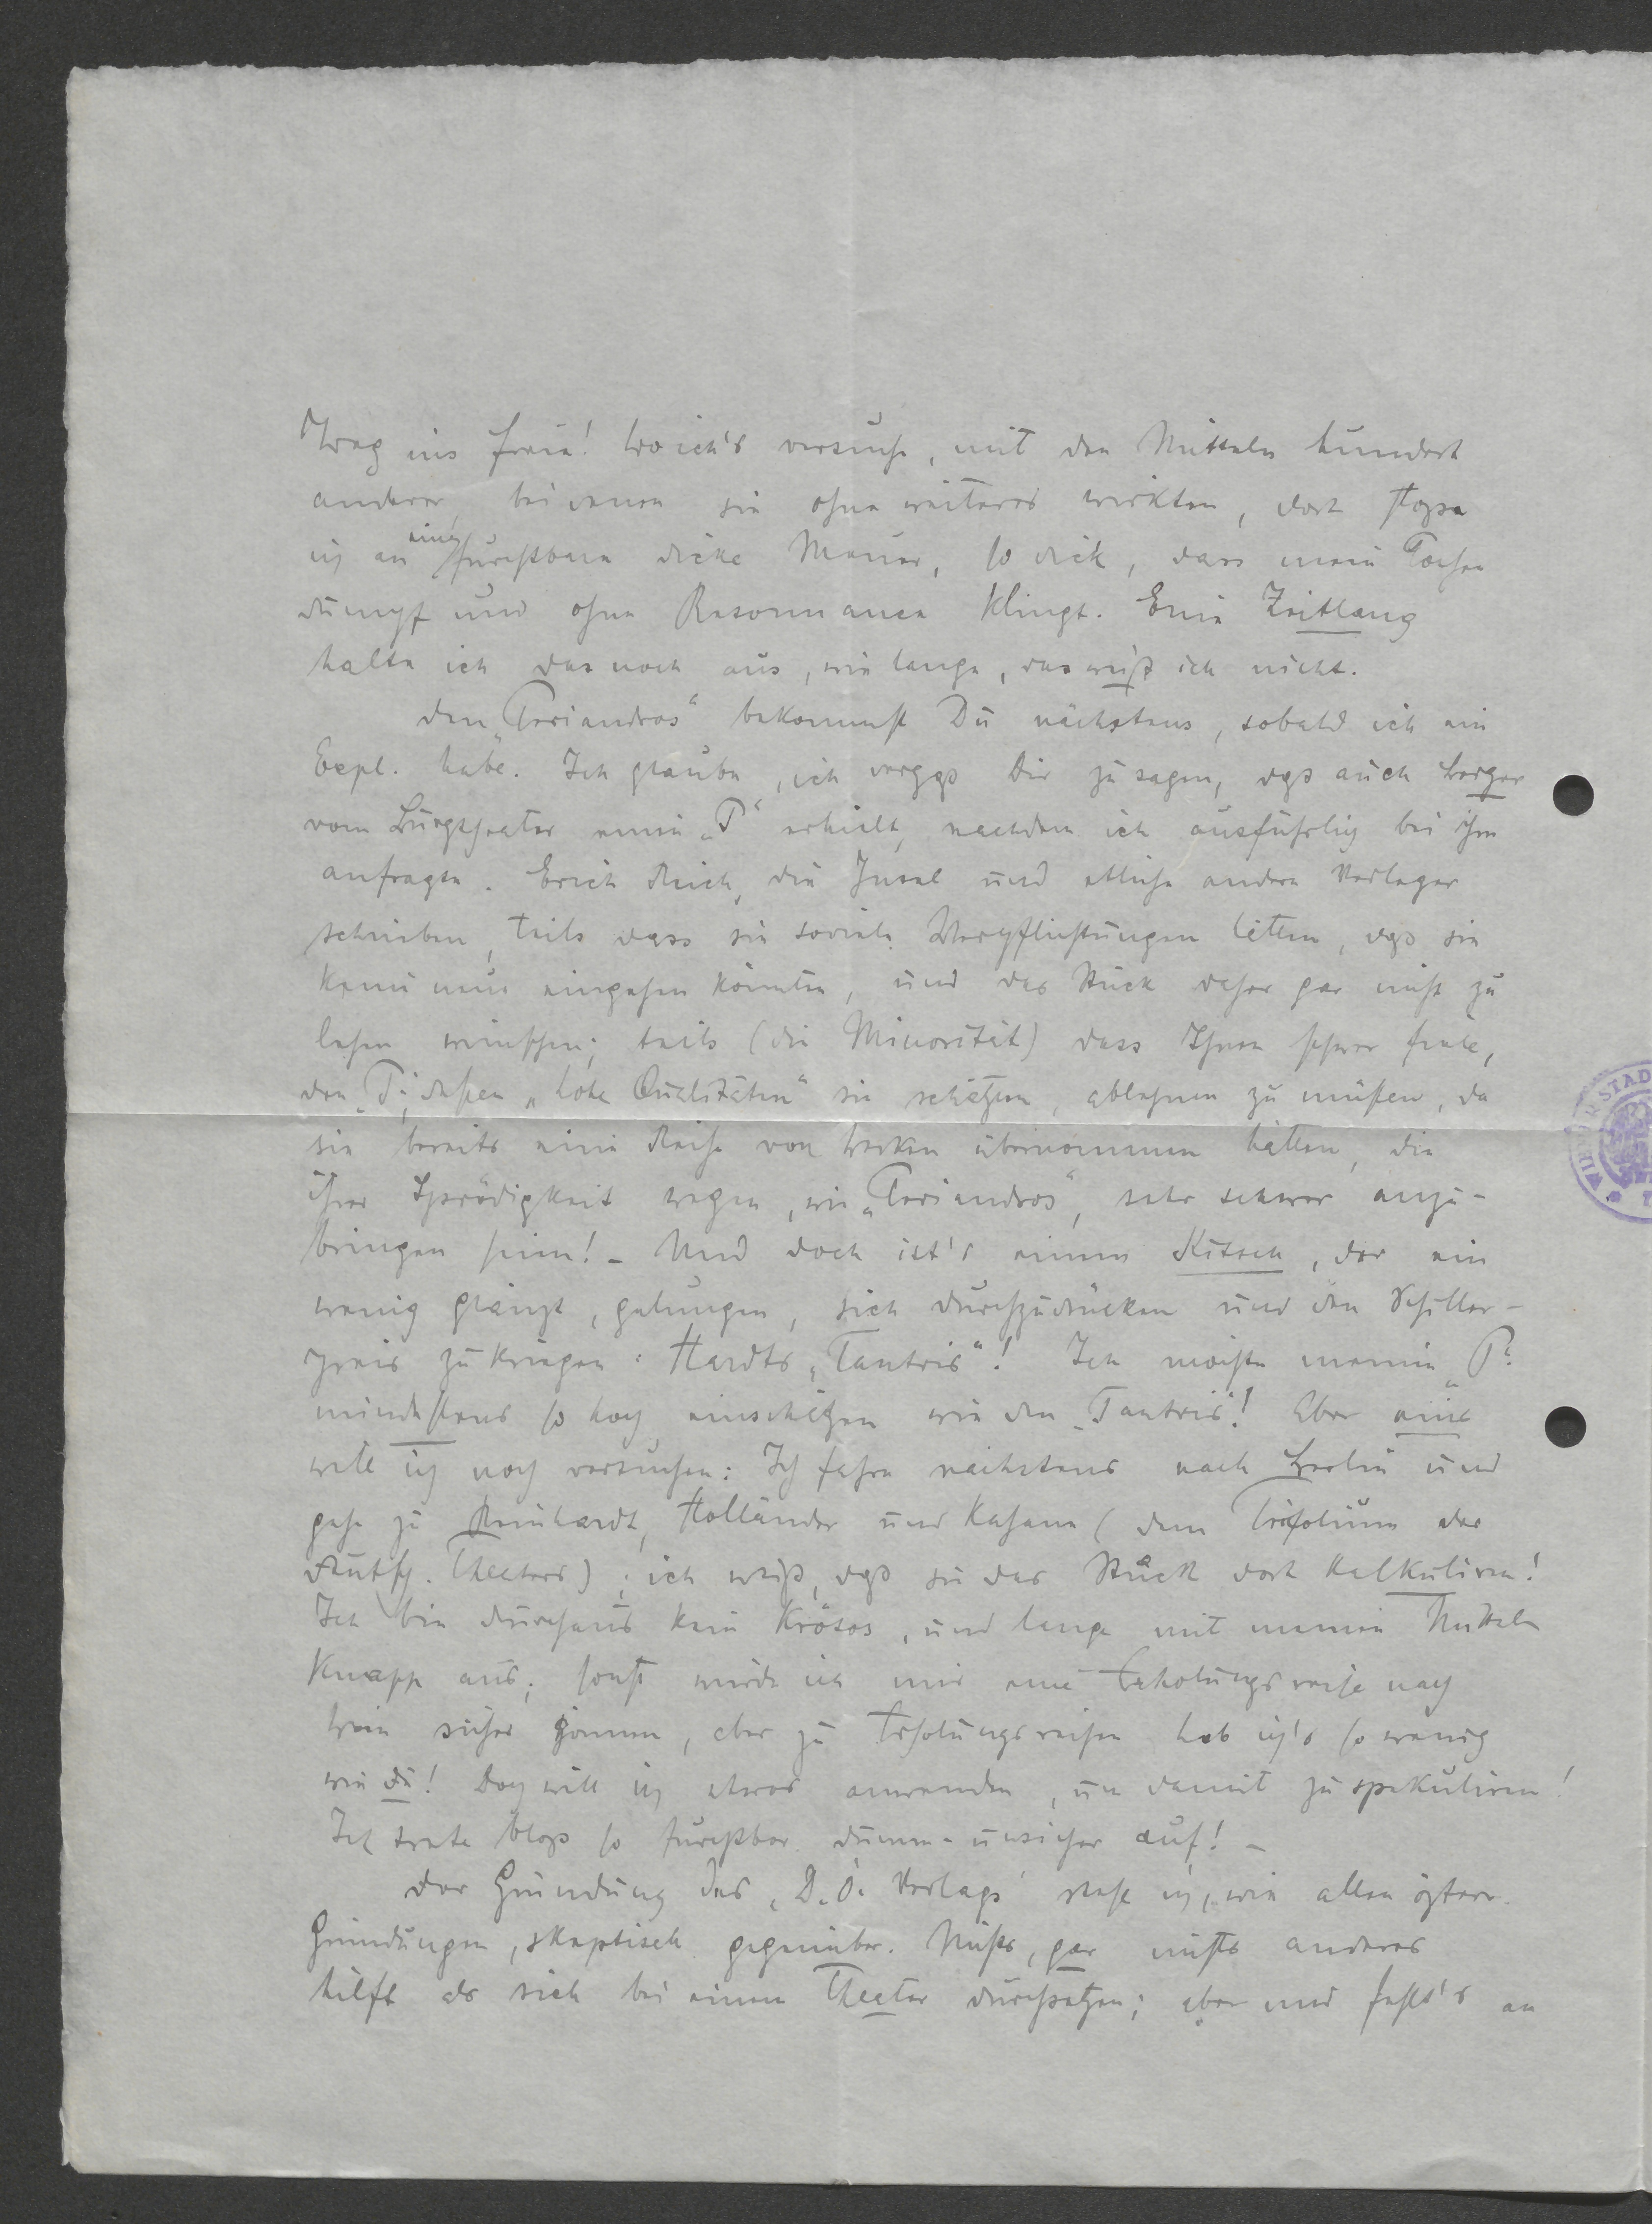 Weg ins Freie! Wo ich's versuche, mit den Mitteln hundert
anderer, bei denen sie ohne weiteres wirkten, dort stosse
ich an eine furchtbare dicke Mauer, so dick, dass mein Pochen
dumpf und ohne Resonnance klingt. Eine Zeitlang
halte ich das noch aus, wie lange, das weiß ich nicht.
Den „Periandros“ bekommst Du nächstens, sobald ich ein
Expl. habe. Ich glaube, ich vergaß Dir zu sagen, daß auch Berger
vom Burgtheater einen „P“ erhielt, nachdem ich ausführlich bei ihm
anfragte. Erich Reich, die Insel und etliche andere Verleger
schrieben, teils dass sie soviele Verpflichtungen hätten, daß sie
keine neue eingehen könnten, und das Stück daher gar nicht zu
lesen wünschen; teils (die Minorität) dass Ihnen schwer fiele,
den „P“, dessen „hohe Qualitäten“ sie schätzen, ablehnen zu müßen, da
sie bereits eine Reihe von Werken übernommen hätten, die
ihrer Sprödigkeit wegen, wie „Periandros“, sehr schwer anzu-
bringen seien! – Und doch ist's einem Kitsch, der ein
wenig glänzt, gelungen, sich durchzudrücken und den Schiller-
preis zu kriegen: Hardts „Tantris“! Ich möchte meinen „P“
mindestens so hoch einschätzen wie den „Tantris“! Aber eins
will ich noch versuchen: Ich fahre nächstens nach Berlin und
gehe zu Reinhardt, Holländer und Kahane (dem Trifolium des
Deutsch. Theaters); ich weiß, daß sie das Stück dort kalkuliren!
Ich bin durchaus kein Krösos, und lange mit meinen Mitteln
knapp aus; sonst würde ich mir eine Erholungsreise nach
Wien sicher gönnen, aber zu Erholungsreisen hab ich's so wenig
wie Du! Doch will ich etwas anwenden, um damit zu spekuliren!
Ich trete bloß so furchtbar dumm-unsicher auf! –
Der Gründung des „D. Ö. Verlags“ stehe ich, wie allen österr.
Gründungen, skeptisch gegenüber. Nichts, gar nichts anderes
hilft als sich bei einem Theater durchsetzen; aber mir fehlt's an
STAD